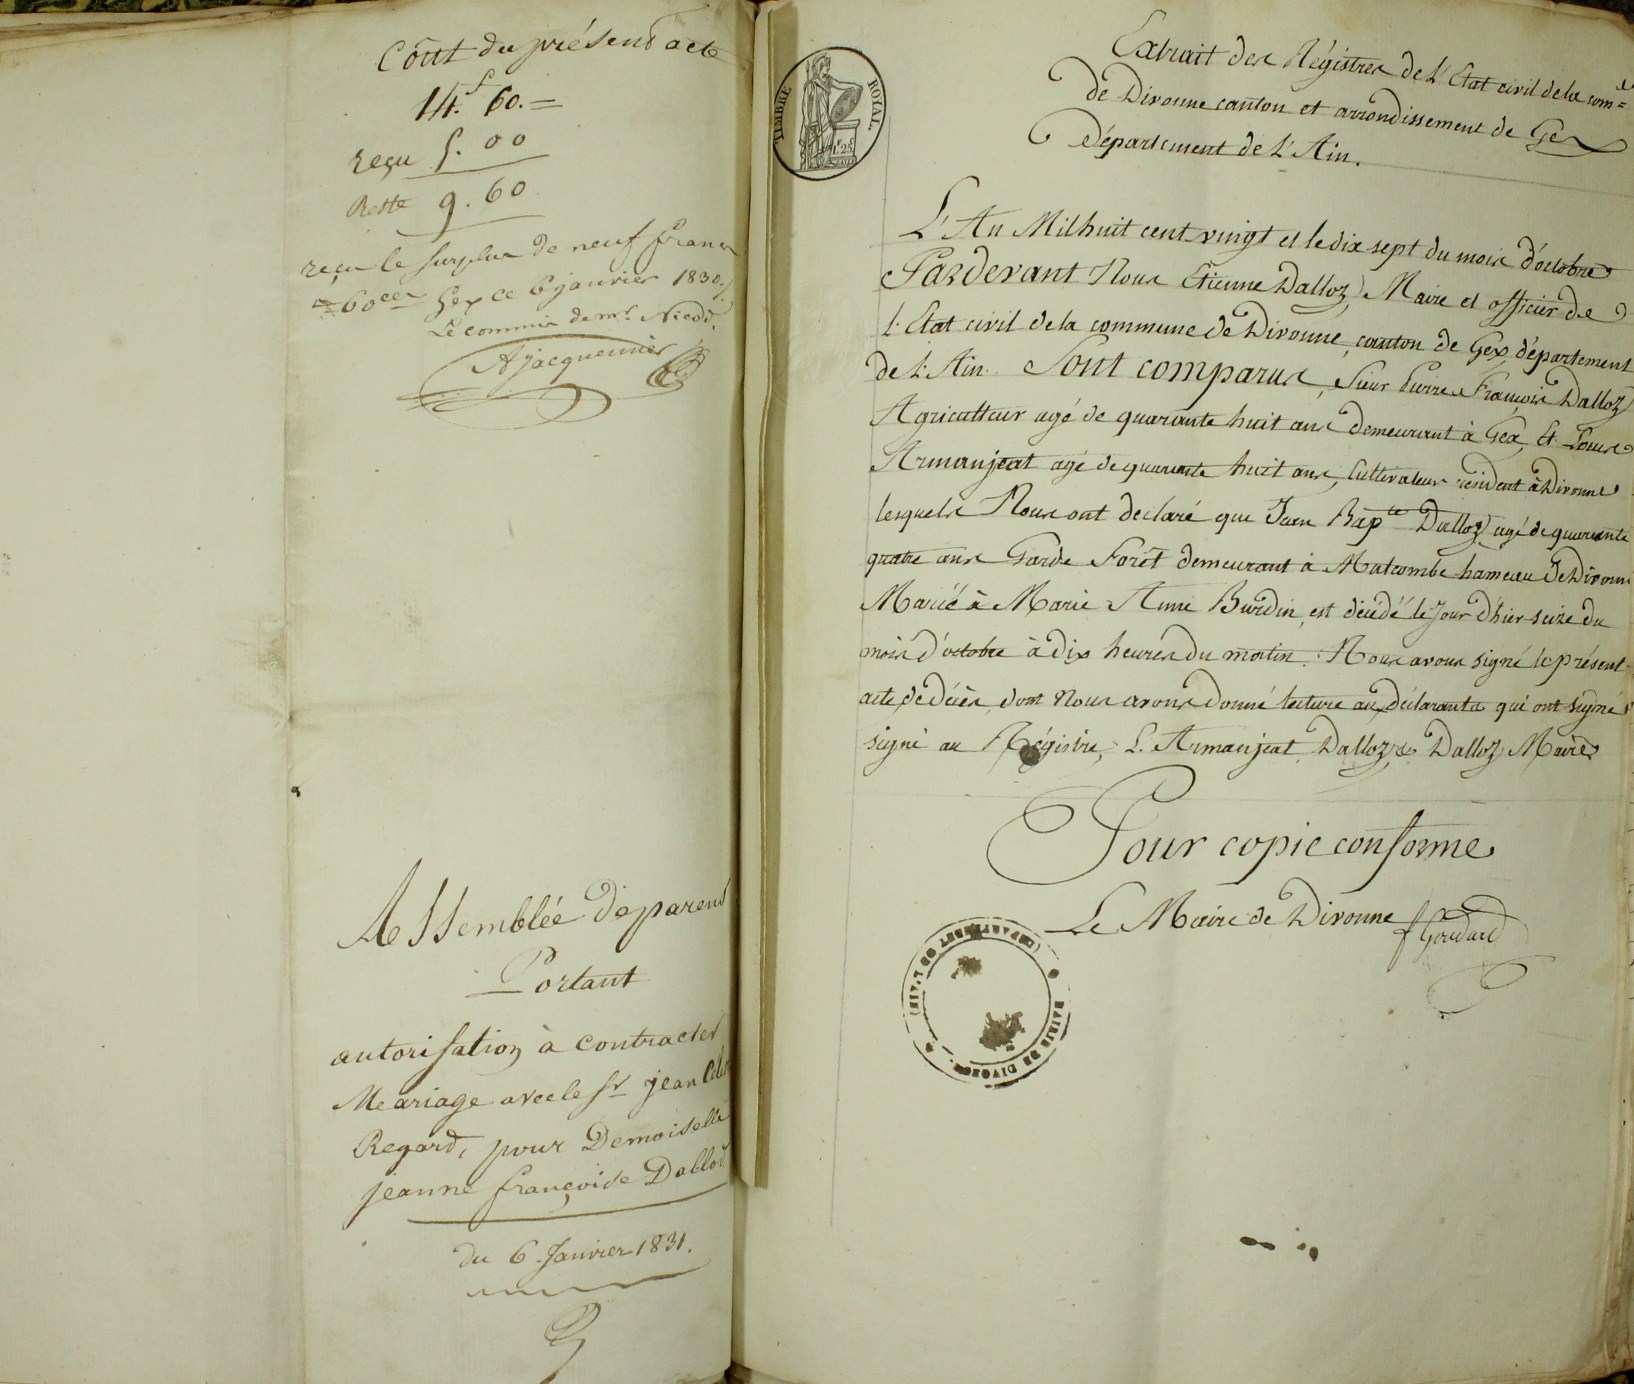 Coût du présent acte
14.f 60.=
reçu 5. 00
Reste 9. 60
reçu le surplus de neuf francs
60ces Gex ce 6 janvier 1830.
Le commis de mr. Nicod.
Ajacquemier
Assemblée de parens
Portant
autorisation à contracter
Mariage avec le sr jean
Regard, pour Demoiselle
jeanne françoise Dallod
du 6. Janvier 1831.
TIMBRE ROYAL.
1f. 25c
Extrait des Régistres de L'Etat civil de la com=e
de Divonne canton et arrondissement de Gex
Département de L'Ain.
L'An Mil huit cent vingt et le dix sept du mois d'octobre
Pardevant Nous Etienne Dalloz Maire et officier de
L'Etat civil de la commune de Divonne, canton de Gex département
de L'Ain. Sont comparus, Sieur Pierre François Dalloz
Agriculteur agé de quarante huit ans demeurant à Gex, Et Louis
Armanjeat agé de quarante huit ans, Cultivateur résident à Divonne
lesquels Nous ont declaré que Jean Bapte Dalloz agé de quarante
quatre ans Garde Forêt demeurant à Matcombe hameau de Divonne
Marié à Marie Anne Burdin, est décédé le Jour d'hier seize du
mois d'octobre à dix heures du matin. Nous avons signé le présent
acte de décès dont Nous avons donné lecture aux déclarants qui ont signé
signé au Régistre, L. Armanjeat, Dalloz & Dalloz Maire
Pour copie conforme
Le Maire de Divonne Goudard
MAIRIE DE DIVONNE. (DÉPARTEMENT DE L'AIN)